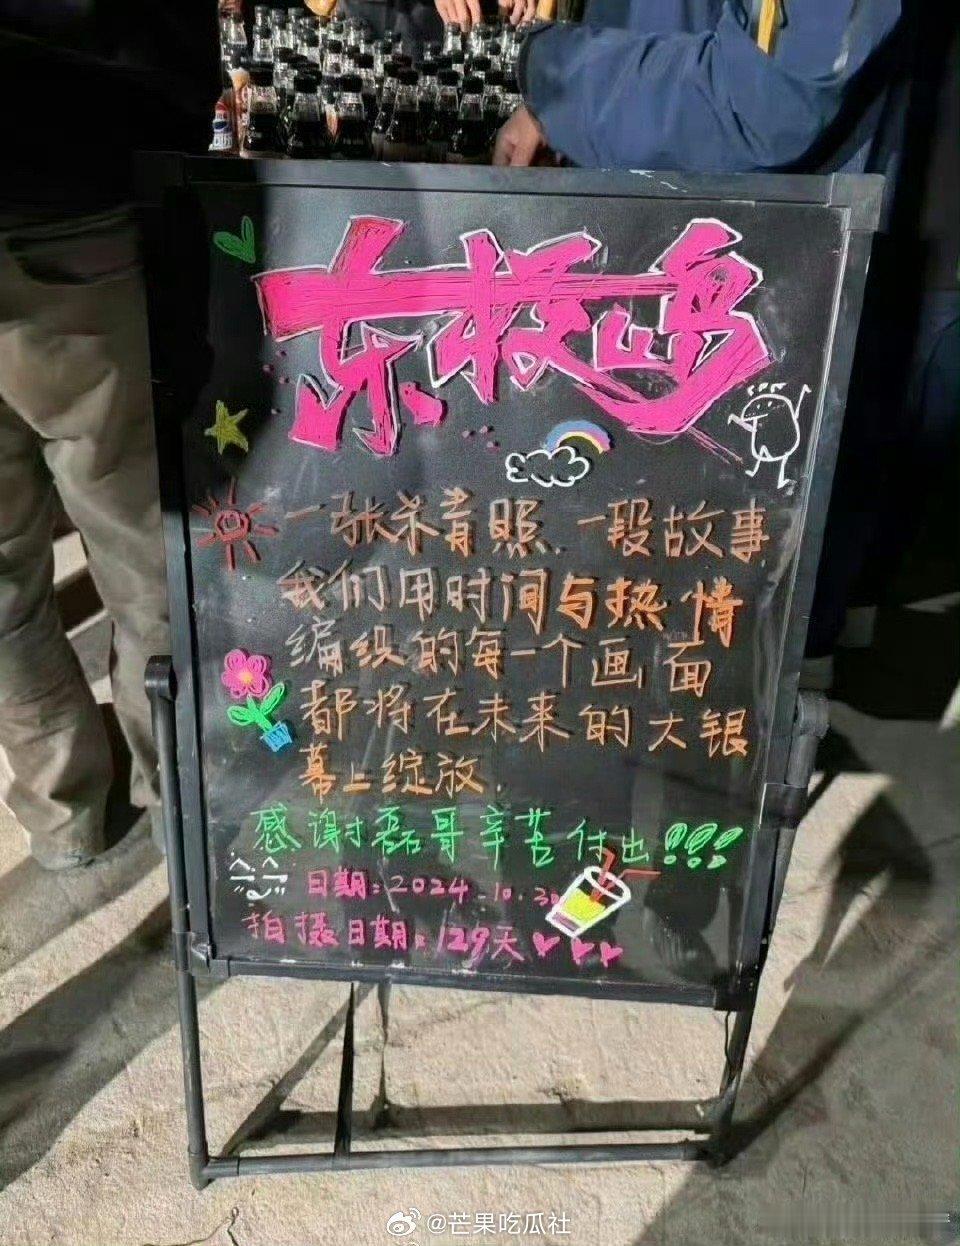 东极岛
一张杀青照.一段故事
我们用时间与热情
编织的每一个画面
都将在未来的大银
幕上绽放.
感谢磊哥辛苦付出!!!
日期:2024.10.30
拍摄日期:129天
@芒果吃瓜社